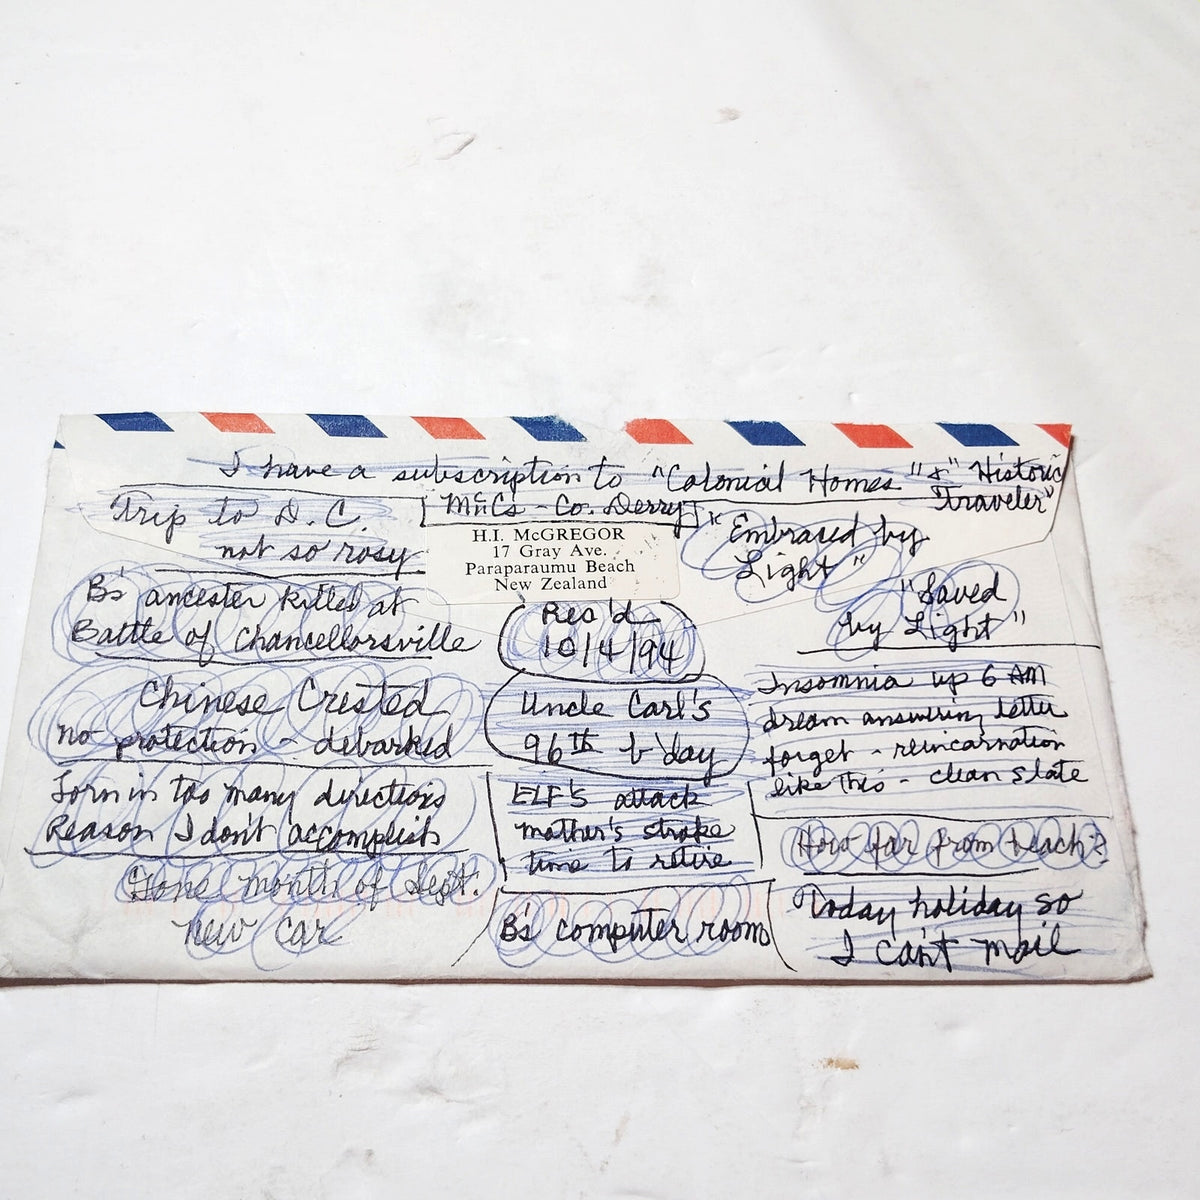 I have a subscription to "Colonial Homes" & "Historic
Traveler"
Trip to D.C.
not so rosy
McCs - Co. Derry
H.I. McGREGOR
17 Gray Ave.
Paraparaumu Beach
New Zealand
"Embraced by
Light"
"Saved
by Light"
B's ancester killed at
Battle of Chancellorsville
Rec'd
10/4/94
Chinese Crested
no protection - debarked
Uncle Carl's
96th b'day
Insomnia up 6 AM
dream answering letter
forget - reincarnation
like this - clean slate
Torn in too many directions
Reason I don't accomplish
ELF'S attack
mother's stroke
time to retire
How far from beach?
Gone month of Sept.
New Car
B's computer room
Today holiday so
I can't mail